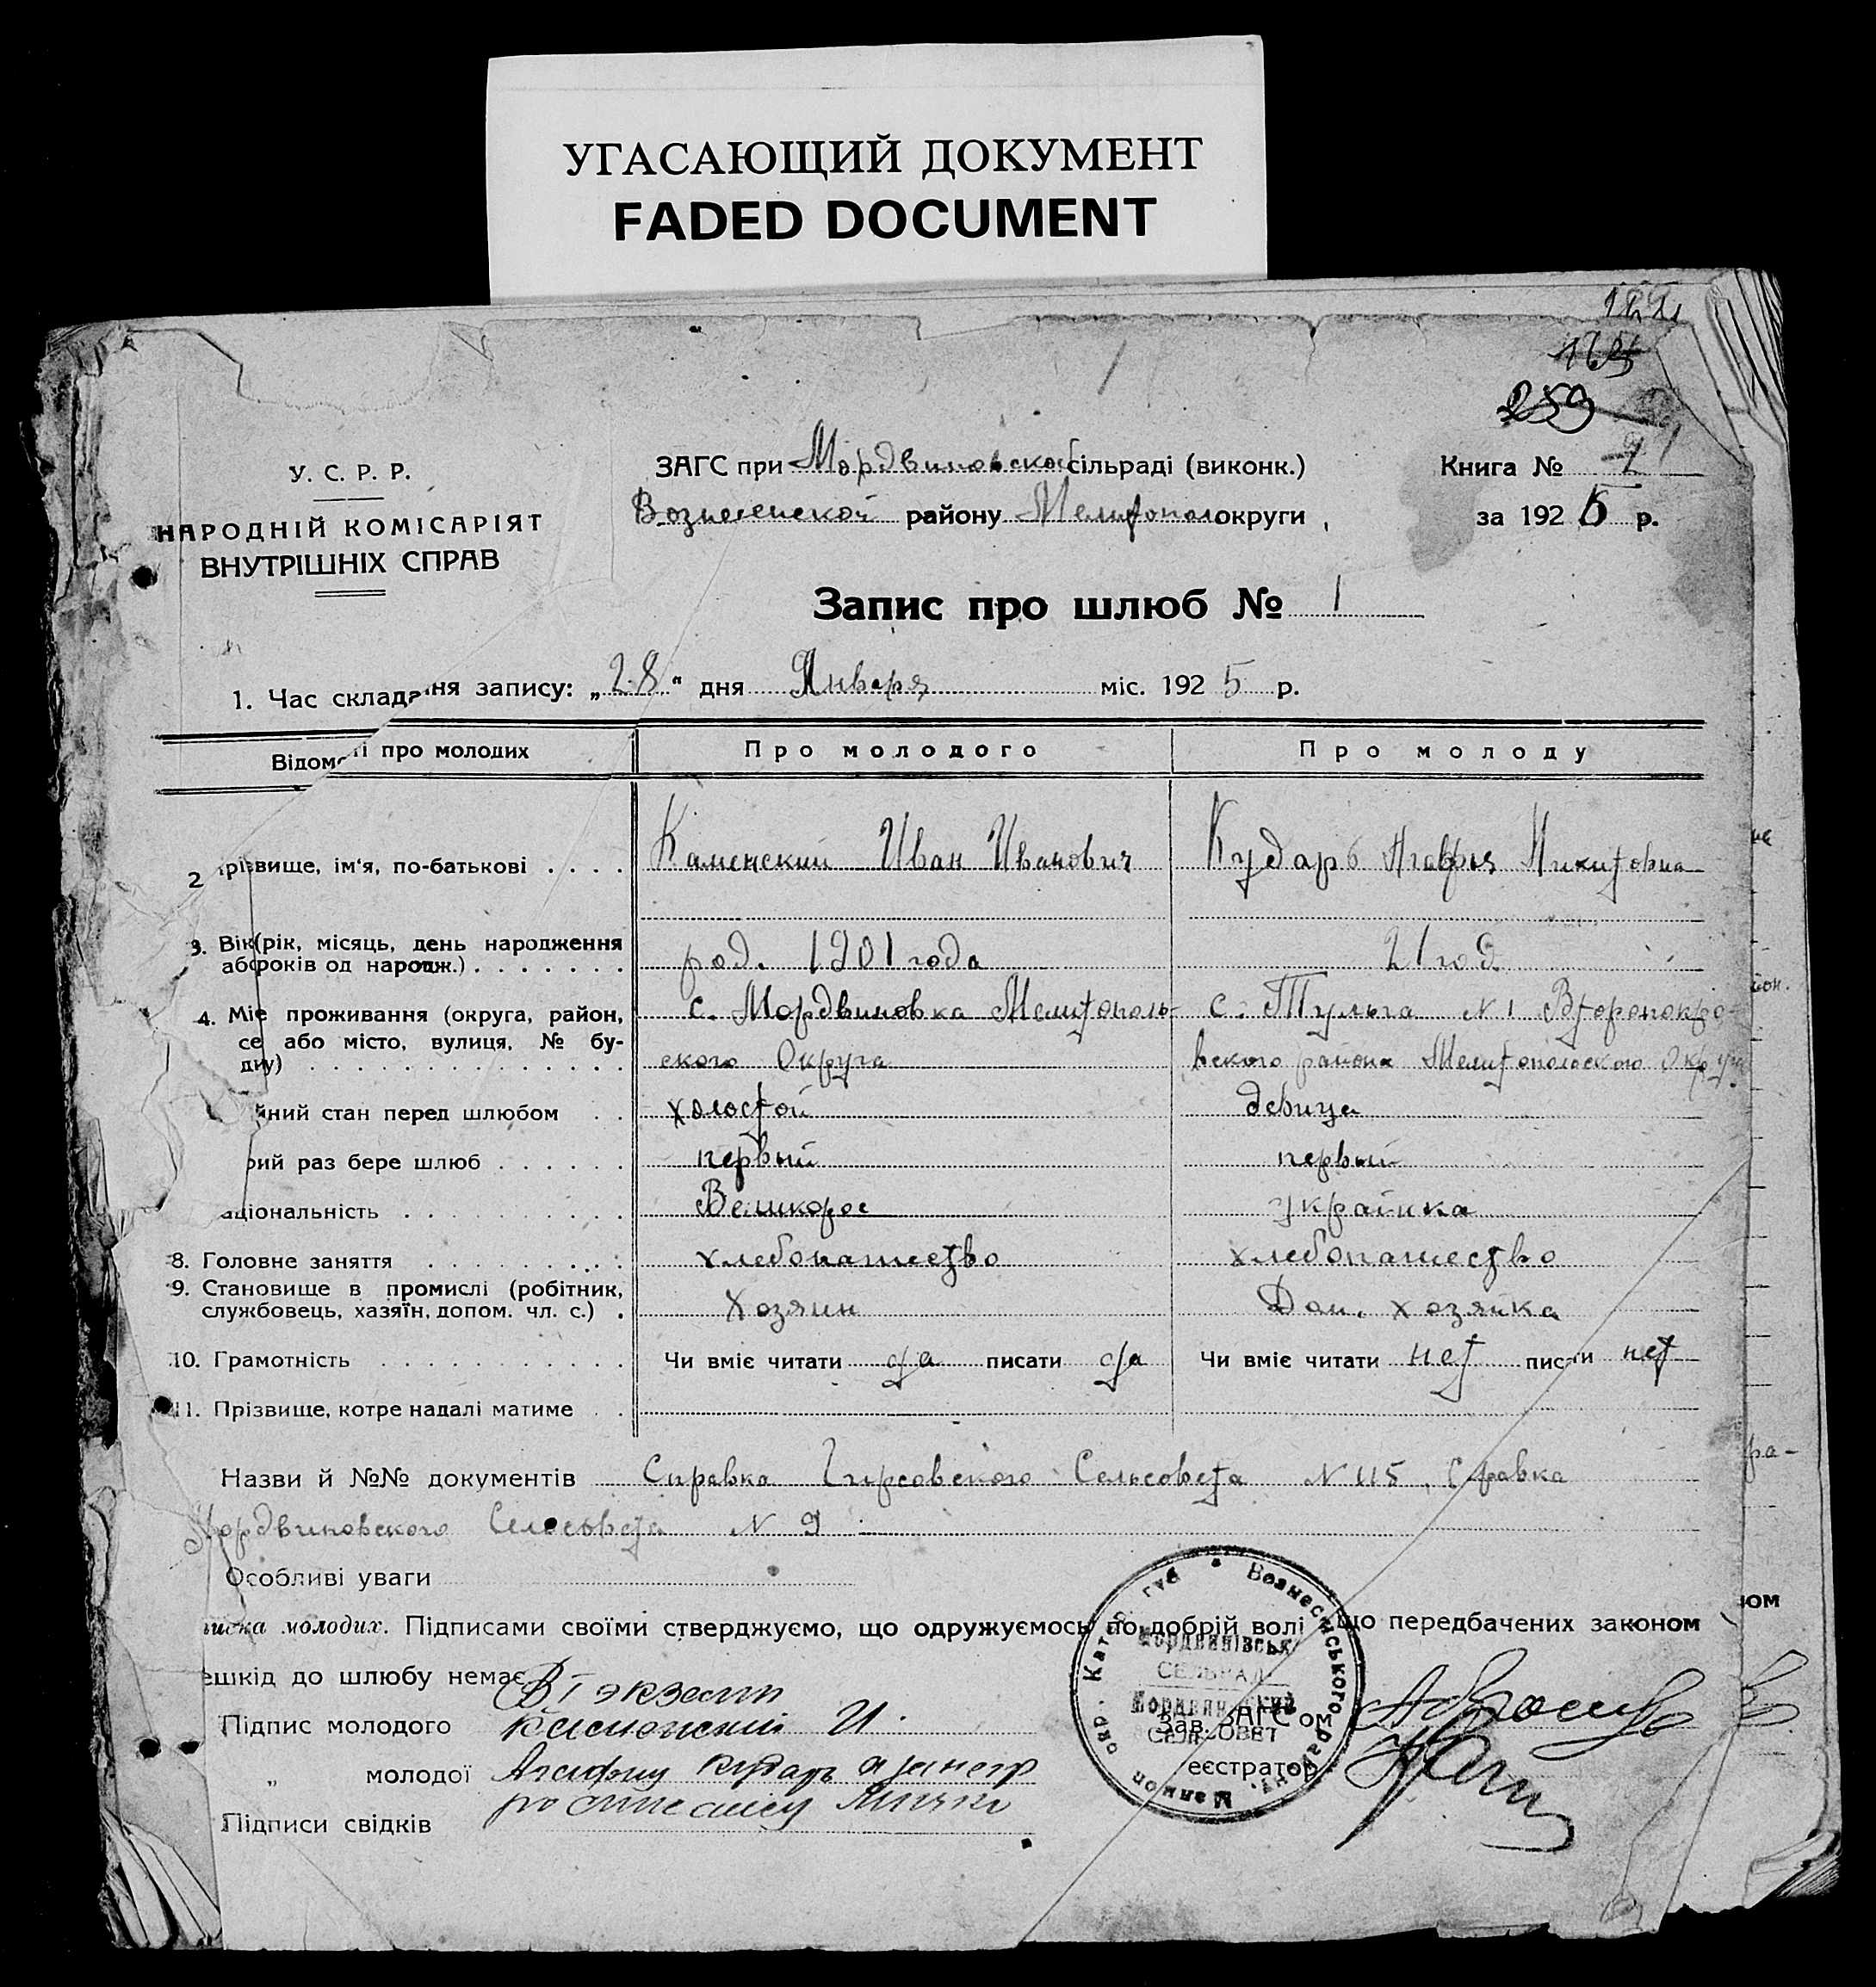 УГАСАЮЩИЙ ДОКУМЕНТ
FADED DOCUMENT
259
У. С. Р. Р.
НАРОДНІЙ КОМІСАРІЯТ
ВНУТРІШНІХ СПРАВ
ЗАГС при Мордвиновской сільраді (виконк.)
Вознесенской району Мелитопол округи
Книга №
за 1925 р.
Запис про шлюб № 1
1. Час складання запису: „28" дня Января міс. 1925 р.
Відомості про молодих
Про молодого
Про молоду
2 прізвище, ім'я, по-батькові . . . .
Каменский Иван Иванович
Кударь Агафия Никитовна
3. Вік (рік, місяць, день народження
або років од народж.) . . . . . . .
род. 1901 года
21 год
4. Міс проживання (округа, район,
се або місто, вулиця, № бу-
дну) . . . . . . . . . . . . . .
с. Мордвиновка Мелитополь-
ского Округа
с. Тульга N 1 Второпокро-
вского района Мелитопольского Округ
йний стан перед шлюбом . .
холостой
девица
рий раз бере шлюб . . . . . .
первый
первый
аціональність . . . . . . . . . .
Великорос
украинка
8. Головне заняття . . . . . . . . . .
хлебопашество
хлебопашество
9. Становище в промислі (робітник,
службовець, хазяїн, допом. чл. с.) .
Хозяин
Дом. хозяйка
10. Грамотність . . . . . . . . . . . .
Чи вміє читати да писати да
Чи вміє читати нет писати нет
11. Прізвище, котре надалі матиме . .
Назви й №№ документів Справка Гирсовского Сельсовета N 115, Справка
Мордвиновского Сельсовета N 9
Особливі уваги
писка молодих. Підписами своїми стверджуємо, що одружуємось по добрій волі що передбачених законом
ешкід до шлюбу немає
Підпис молодого Каменский И.
„ молодої Агафию Кударь
Підписи свідків
Зав. ЗАГС'ом
еєстратор
Вознесенського
Мордвинівськ
СЕЛЬРАД
Мордвиновский
СЕЛЬСОВЕТ